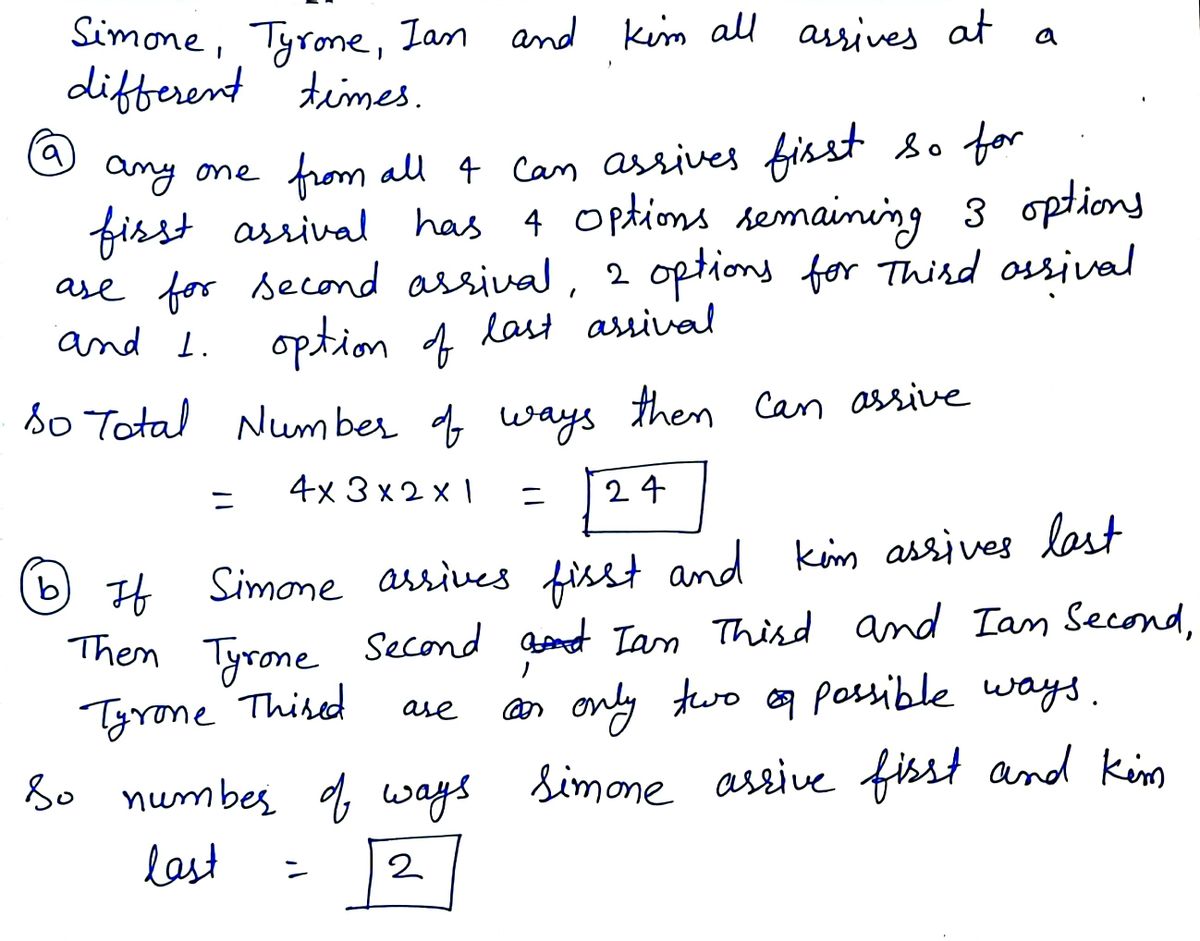 Simone, Tyrone, Ian and kim all arrives at a
different times.
(a) any one from all 4 can arrives first so for
first arrival has 4 options remaining 3 options
are for second arrival, 2 options for Third arrival
and 1. option of last arrival
So Total Number of ways then can arrive
= 4x3x2x1 = 24
(b) If Simone arrives first and kim arrives last
Then Tyrone Second , Ian Third and Ian Second,
Tyrone Third are only two possible ways.
So number of ways Simone arrive first and kim
last = 2